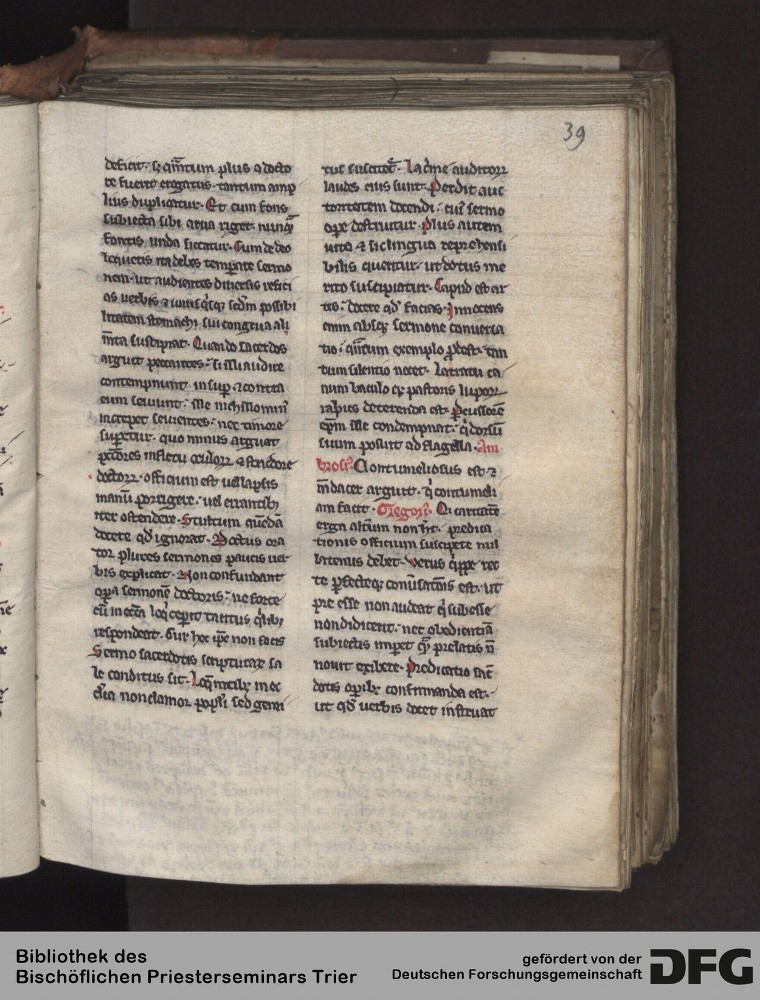 39
deficit. sꝫ quātum plus a docto
re fuerit erogatus. tantum amp
lius duplicatur. Et cum fons
subiecta sibi arua riget. nunꝙ̄
fontis unda siccatur. Cum de deo
loqueris ita debes temp̄are sermo
nem. ut audientes diuersis refici
as uerbis ⁊ unusqͥsqꝫ scd̄m possibi
litatem stomachi sui congrua ali
mēta suscipiat. Quando sacerdos
arguit peccantes. si illi audire
contempnunt insup̄ ⁊ contra
eum seuiunt. ille nichillominꝰ
increpet seuientes. nec timore
sup̄etur. quo minus arguat
pc̄cores in fletu oculoꝝ ⁊ stridore
doctoꝝ. officium est uel lapsis
manū porrigere. uel errantibꝫ
iter ostendere. Stultum quēdā
docere qd̓ ignorat. Doctus ora
tor plures sermones paucis uer
bis explicat. Non confundant
opa sermonē doctoris. ne forte
cū in ecc̄a loqͥ ceperit tacitus qͥlibꝫ
respondeat. Cur hec ip̄e non facis
Sermo sacerdotis scripturaꝝ sa
le conditus sit. Loqͥ incibꝫ in ec
cl̄ia non clamor popl̓i sed gemi
tus suscitet̓. Lac̓me auditoꝝ
laudes eius sunt. Perdit auc
toritatem docendi. cuiꝰ sermo
ope destruitur. Plus autem
uita ⁊ si c lingua reprehensi
bilis queritur. ut dotus me
rito suscipiatur. Caput est ar
tis. docere qd̓ facias. Innocens
enim absqꝫ sermone conuersa
tio. quātum exemplo p̄dest. tan
tum silentio nocet. Latratu ca
num baculo qꝫ pastoris lupoꝝ
rabies deterrenda est. Percussorē
ep̄m ille condempnat. qͥ dorsū
suum posuit ad flagella. Am
brosiꝰ. Contumeliosus est ⁊
mēdacer arguit. qͥ contumeli
am facit. Gregoriꝰ. Qͥ caritatē
erga alt̓um non ht̄. predica
tionis officium suscipere nul
latenus debet. Verus qͥppe rec
te p̄fecteqꝫ con̓usatōis est. ut
pre esse non audeat qͥ subesse
non didicerit. nec obedientiā
subiectis imp̄et qͣꝫ prelatis n̄
nouit exibere. Predicatio sac̓
dotis oꝑibꝫ confirmanda est.
ut qd̓ uerbis docet instruat
Bibliothek des
Bischöflichen Priesterseminars Trier
gefördert von der
Deutschen Forschungsgemeinschaft
DFG